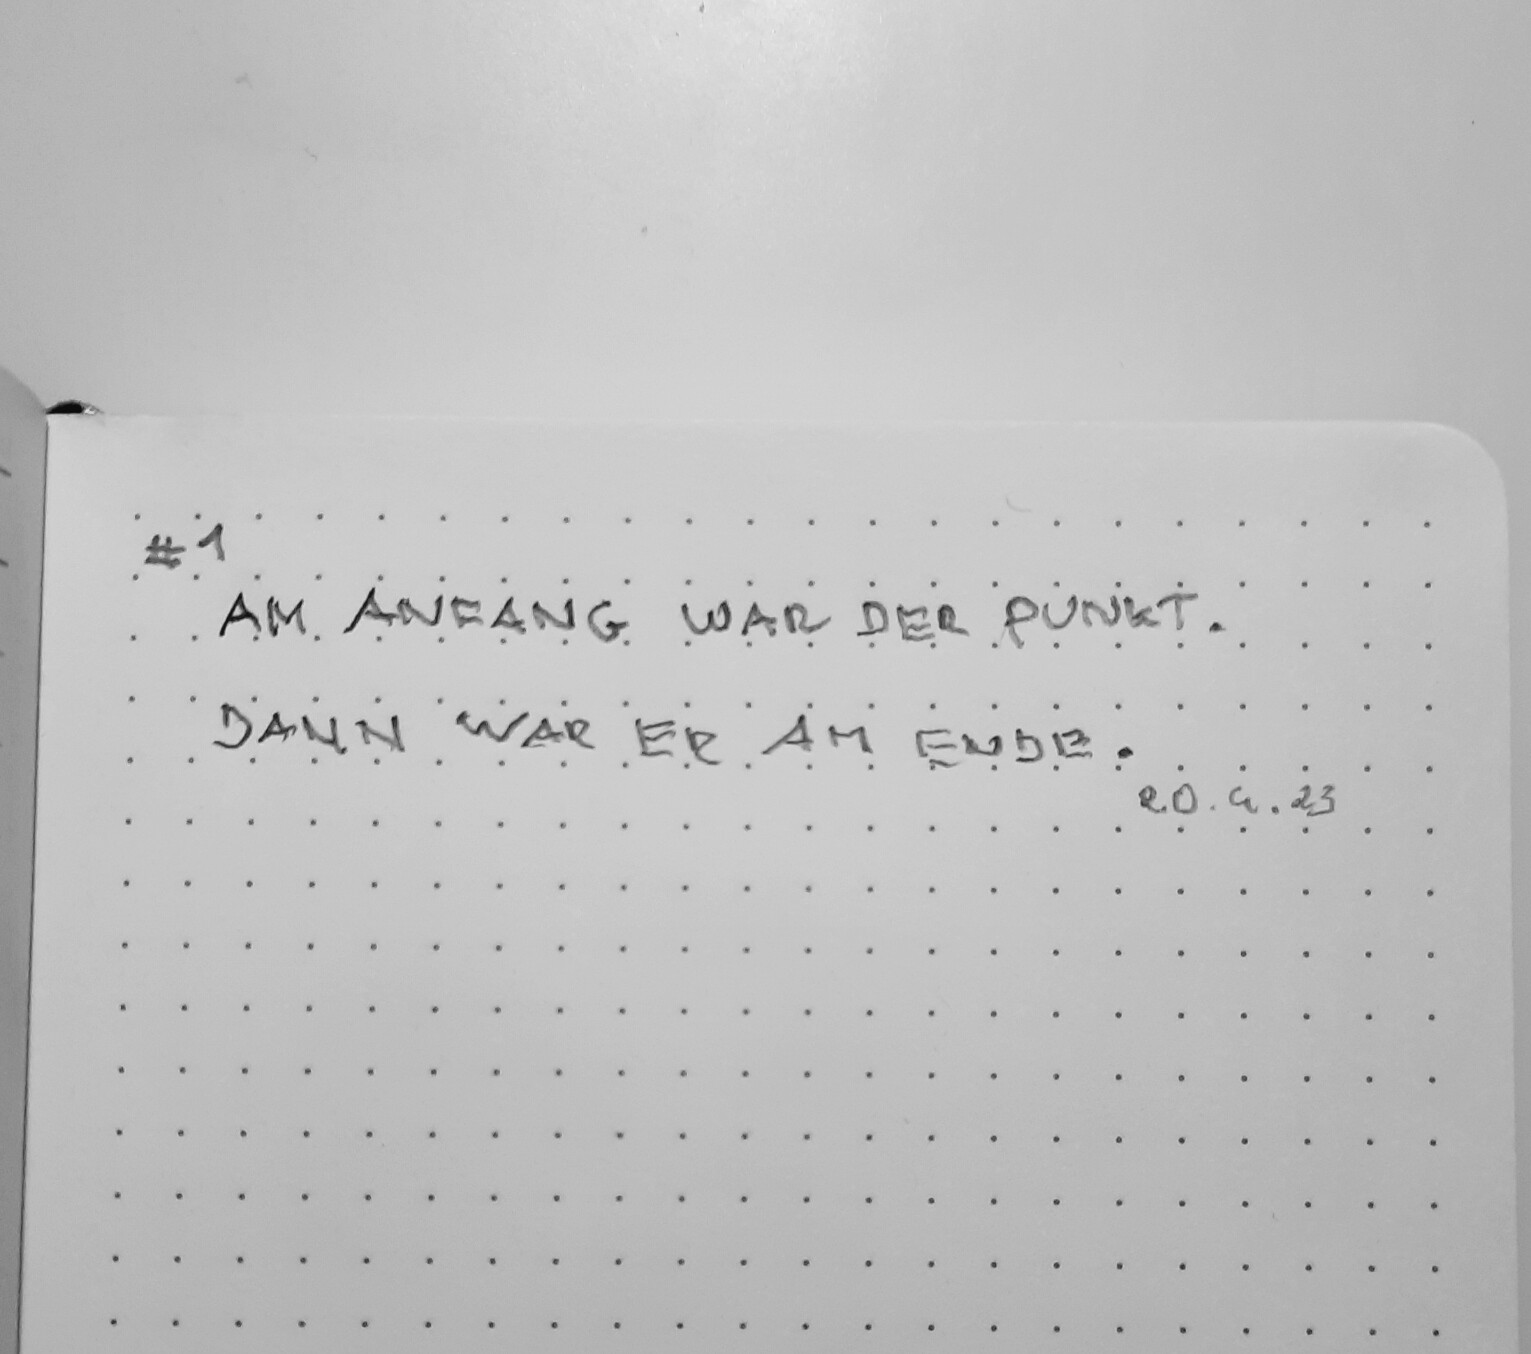 #1
AM ANFANG WAR DER PUNKT.
DANN WAR ER AM ENDE.
20.4.23